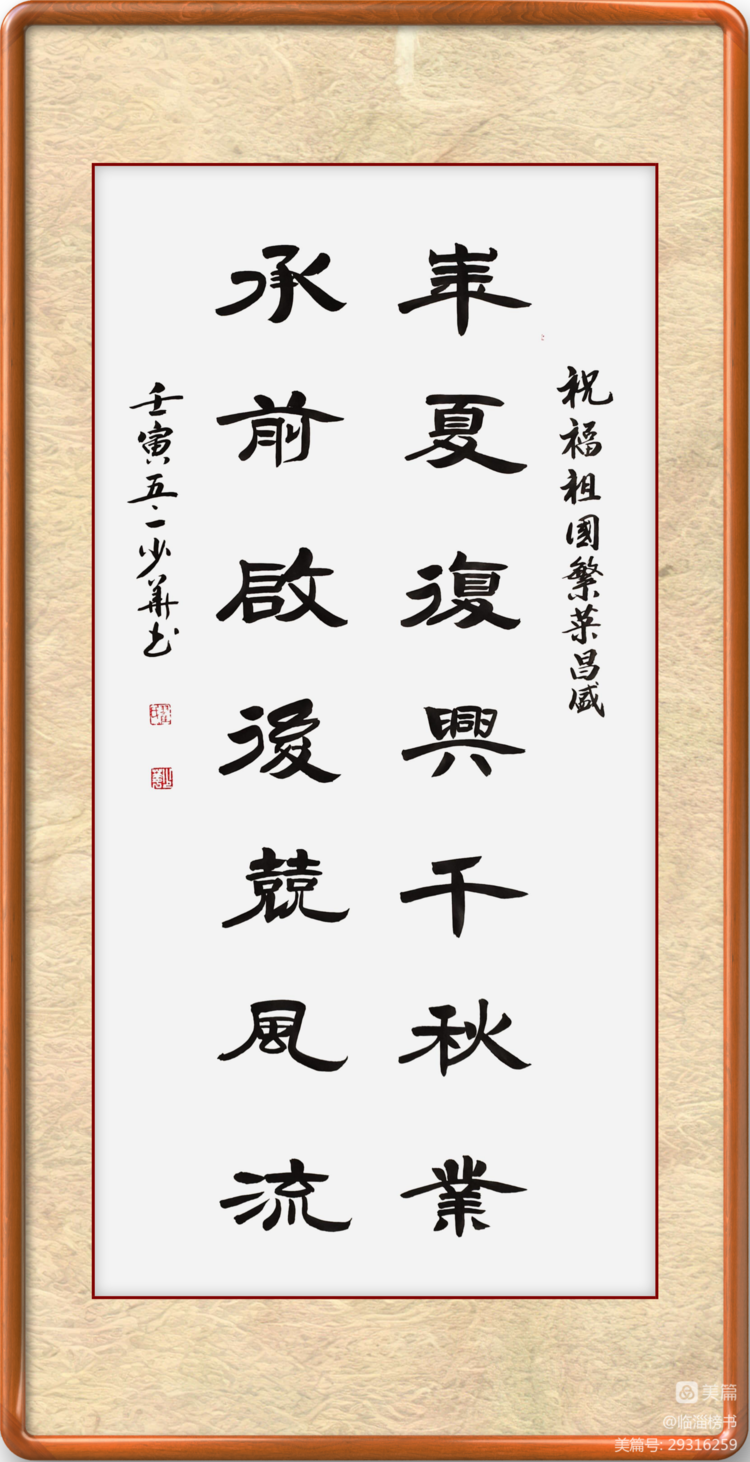 祝福祖國繁荣昌盛
華夏復興千秋業
承前啟後競風流
壬寅五一少華书
美篇
@临淄榜书
美篇号: 29316259